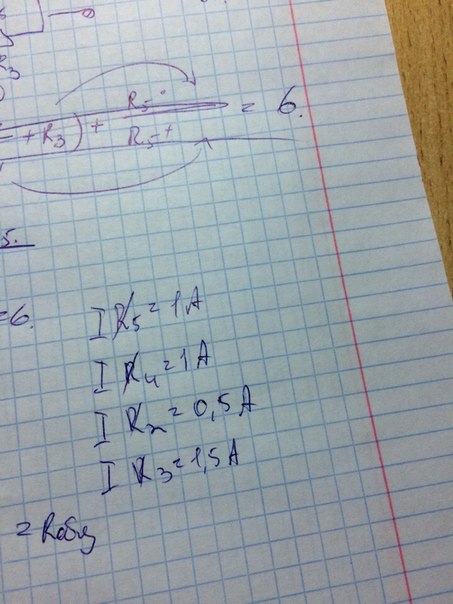 R3
+ R3) + R5 · / R5 + = 6.
5.
=6. I R5 = 1 A
I R4 = 1 A
I Rx = 0,5 A
I R3 = 1,5 A
= Rобщ